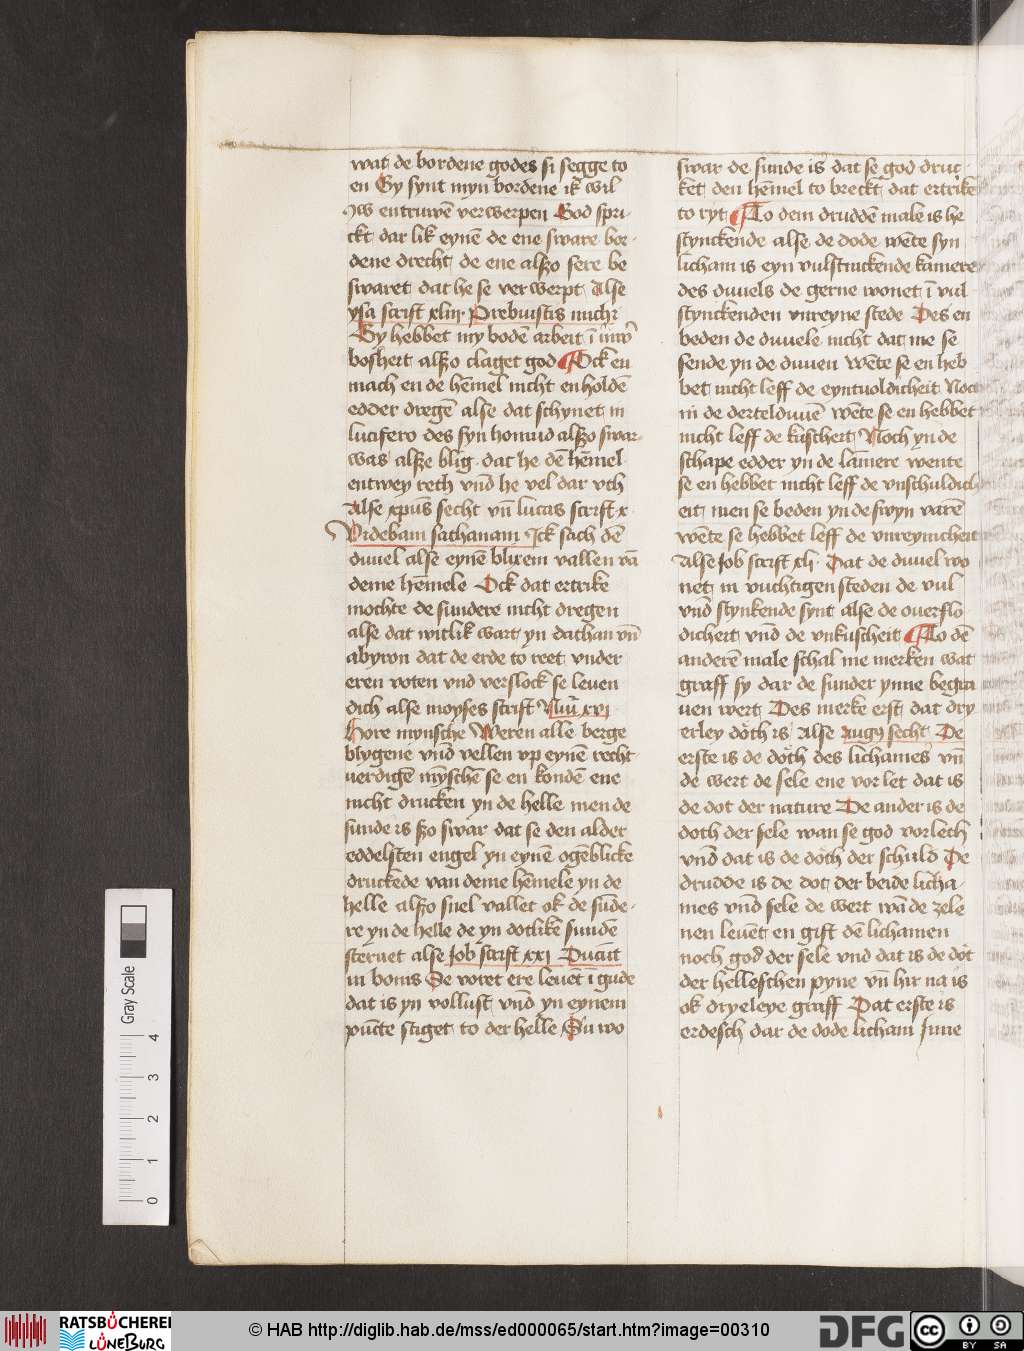 wat de bordene godes si segge to
en Gy synt myn bordene ik wil
Iw entruwē verwerpen God spri-
ckt dar lik eynē de ene sware bor-
dene drecht de ene alßo sere be
swaret dat he se verwerpt Alse
ysa scrift xliij Prebuistis michi
Gy hebbet my bodē arbeit ī iuw
bosheit alßo claget god Ock en
mach en de hēmel nicht en holdē
edder dregē alse dat schynet in
lucifero des syn homud alßo swar
was alße blig dat he dē hēmel
entwey reth vnd he vel dar vth
Alse xpūs secht vn lucas scrift x
Videbam sathanam Ick sach dē
duuel alse eynē blixem vallen vā
deme hēmele Ock dat ertrike
mochte de sundere nicht dregen
alse dat witlik wart yn dathan vn
abyron dat de erde to reet vnder
eren voten vnd verslock se leuen
dich alse moyses scrift Nūi xvi
Hore mynsche Weren alle berge
blygene vnd vellen vp eynē recht
uerdigē mȳschē se en kondē ene
nicht drucken yn de helle men de
sunde is ßo swar dat se den alder
eddelsten engel yn eynē ogēblicke
druckede van deme hēmele yn de
helle alßo snel vallet ok de sūde-
re yn de helle de yn dotlikē sundē
steruet alse Job scrift xxi Ducūt
in bonis Se voret ere leuēt ī gude
dat is yn vollust vnd yn eynem
pūcte stiget to der helle Su wo
swar de sunde is dat se god druc-
ket den hēmel to breckt dat ertrike
to ryt To dem druddē male is he
stynckende alse de dode wēte syn
licham is eyn vulstinckende kamere
des duuels de gerne wonet ī vul
stynckenden vnreyne stede Des en
beden de duuele nicht dat me se
sende yn de duuen wēte se en heb
bet nicht leff de eyntuoldicheit Noch
in de derteldunē wēte se en hebbet
nicht leff de kuscheit Noch yn de
schape edder yn de lāmere wente
se en hebbet nicht leff de vnschuldich
eit men se beden yn de swyn varē
wēte se hebbet leff de vnreynicheit
Alse Job scrift xli Dat de duuel wo
net in vuchtigen steden de vul
vnd stynkende synt alse de ouerflo
dicheit vnd de vnkuscheit To dē
anderē male schal me merken wat
graff sy dar de sunder ynne begra
uen wert Des merke erst dat dry
erley dōth is Alse Augꝰ secht De
erste is de dōth des lichames vn
de wert de sele ene vor let dat is
de dot der nature De ander is de
doth der sele wan se god vorleth
vnd dat is de doth der schuld De
drudde is de dot der beide licha-
mes vnd sele de wert wā de zele
nen leuēt en gift dē lichamen
noch god der sele vnd dat is de dot
der helleschen pyne vn hir na is
ok dryeleye graff Dat erste is
erdesch dar de dode licham Inne
Gray Scale
0 1 2 3 4
RATSBÜCHEREI
LÜNEBURG
© HAB http://diglib.hab.de/mss/ed000065/start.htm?image=00310
DFG
cc
BY SA